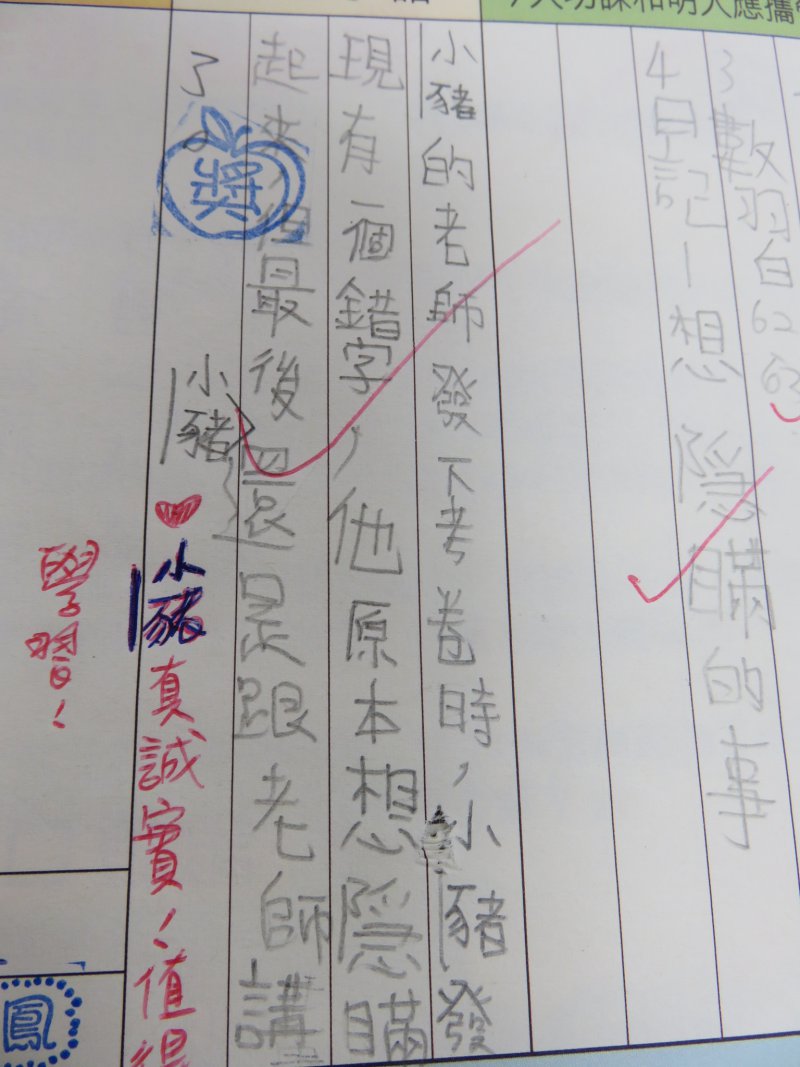 3數習自62
4日記-想隱瞞的事
小豬的老師發下考卷時，小豬發
現有一個錯字，他原本想隱瞞
起來但最後還是跟老師講
了。
小豬
獎
小豬真誠實！值得
學習！
鳳